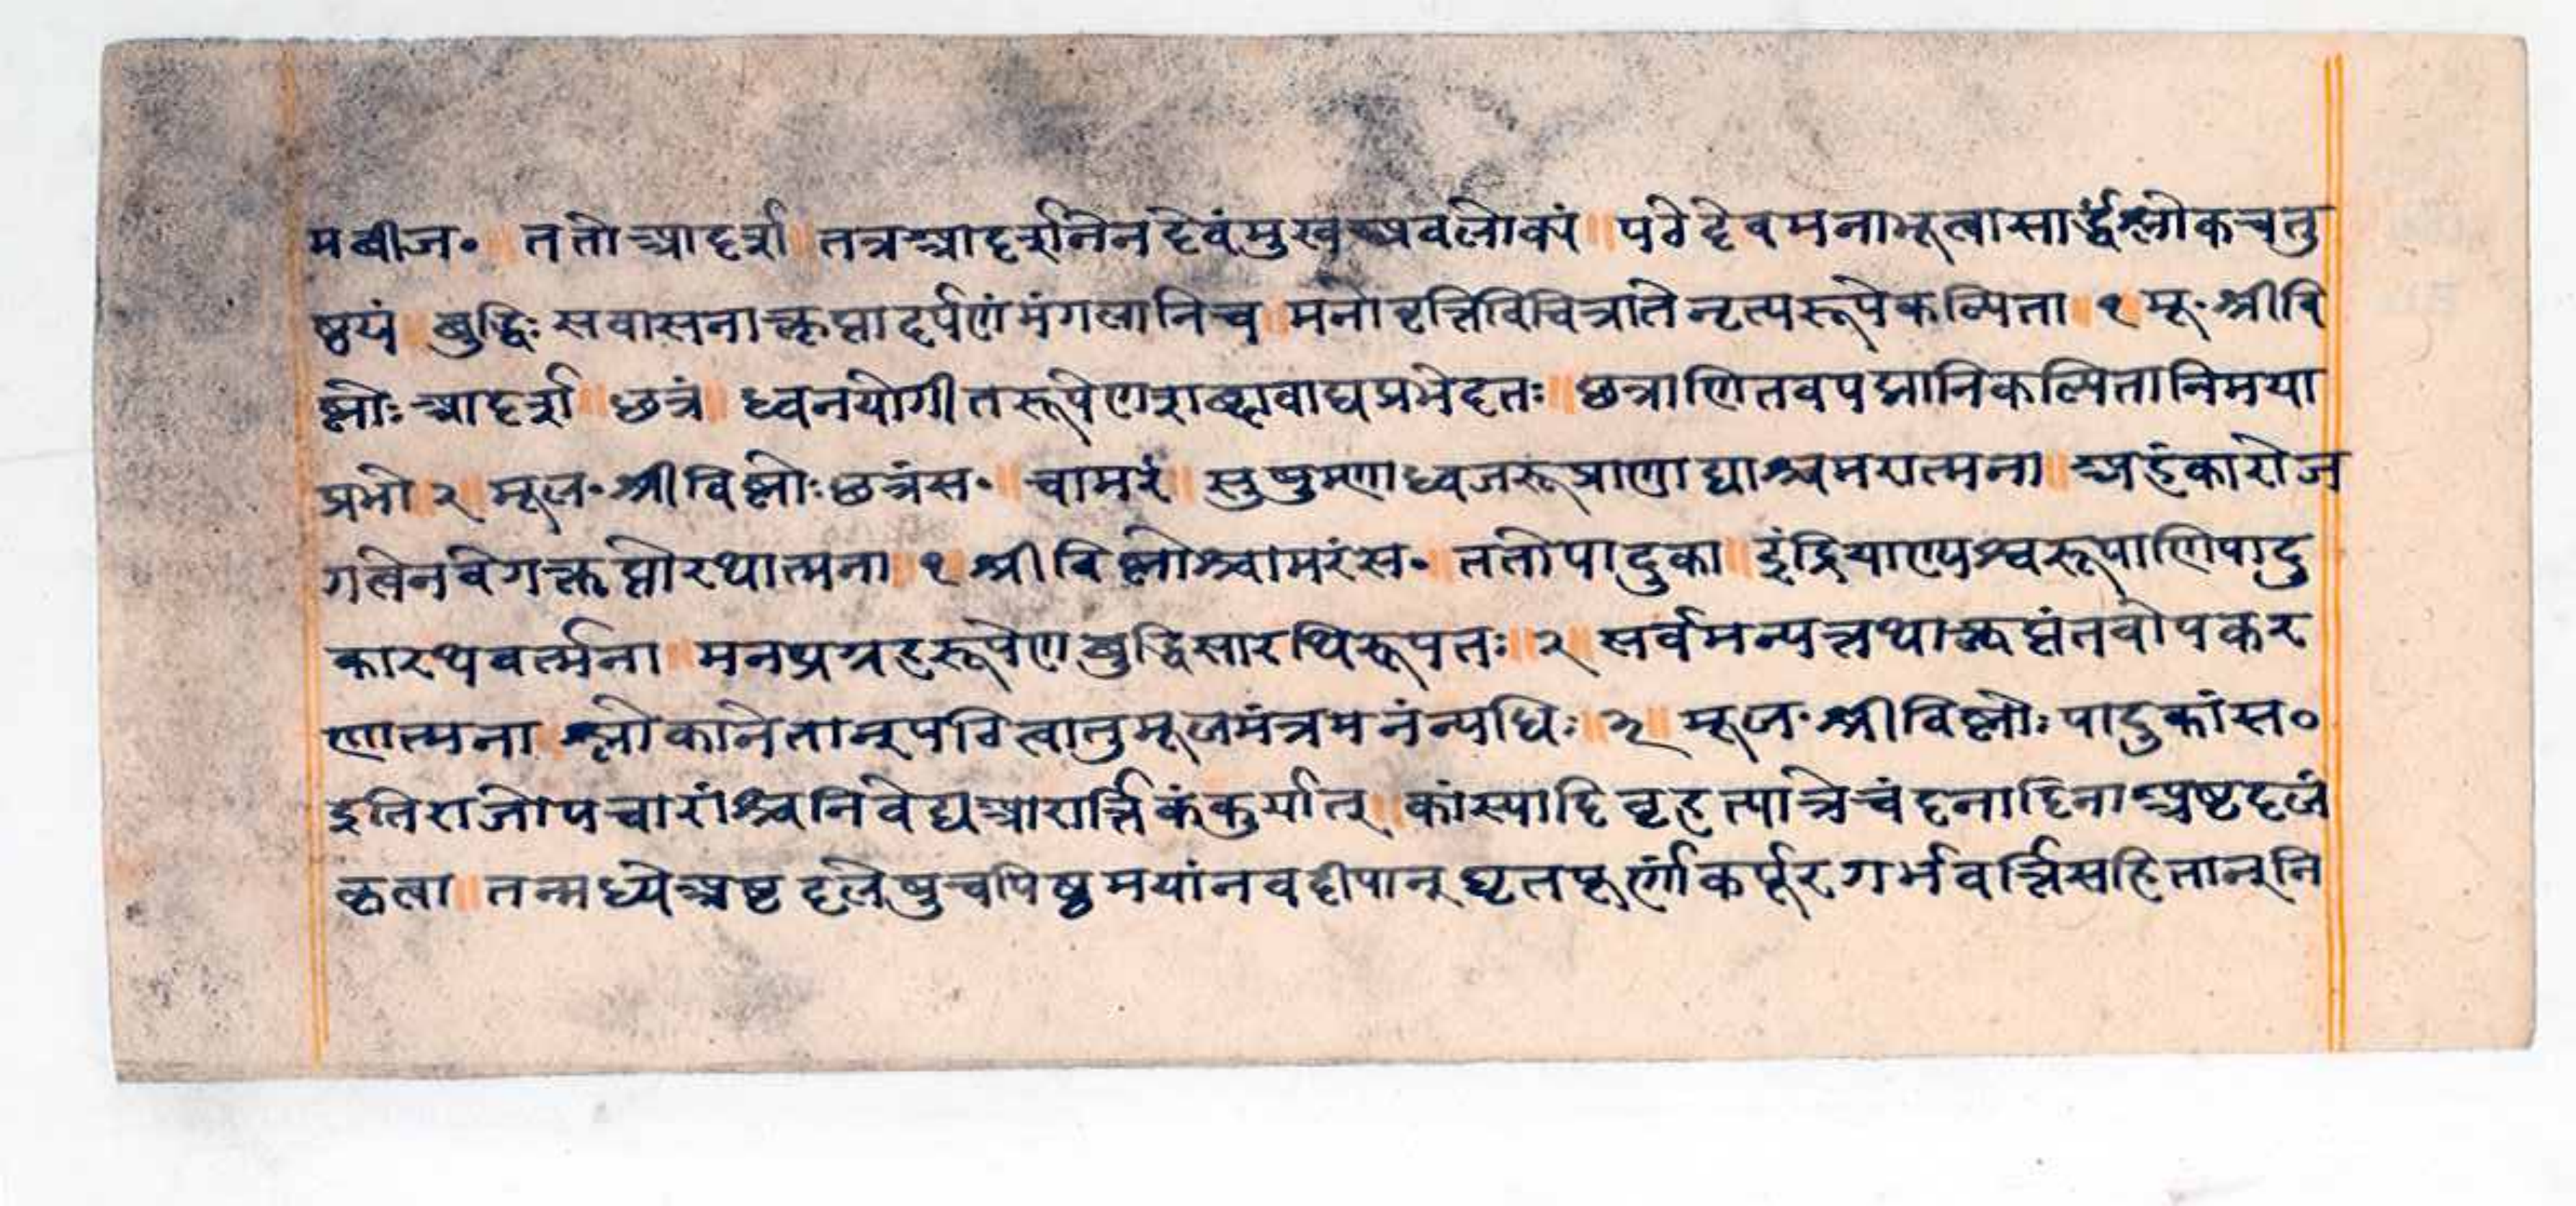 मबीज॰ ॥ ततोआदर्श ॥ तत्रआदर्शनेनदेवंमुखअवलोक्यं ॥ पठेदेवमनाभूत्वासार्द्धश्लोकचतु
ष्टयं ॥ बुद्धिः सवासनाक्लृप्तादर्पणंमंगलानिच ॥ मनोवृत्तिविचित्रातेनृत्यरूपेकल्पिता ॥ १ ॥ मू॰ श्रीवि
ष्णोः आदर्श ॥ छत्रं ॥ ध्वनयोगीतरूपेणशब्दावाद्यप्रभेदतः ॥ छत्राणितवपद्मानिकल्पितानिमया
प्रभो ॥ २ ॥ मूल॰ श्रीविष्णोः छत्रंस॰ ॥ चामरं ॥ सुषुम्णाध्वजरूप्राणाद्याश्चामरात्मना ॥ अहंकारोज
गत्वेनवेगक्लृप्तोरथात्मना ॥ १ ॥ श्रीविष्णोश्चामरंस॰ ॥ ततोपादुका ॥ इंद्रियाण्यश्वरूपाणिपादु
कारथवर्त्मना ॥ मनप्रग्रहरूपेणबुद्धिसारथिरूपतः ॥ २ ॥ सर्वमन्यत्तथाक्लृप्तंतवोपकर
णात्मना ॥ श्लोकानेतान्पठित्वातुमूलमंत्रमनंन्यधिः ॥ ३ ॥ मूल॰ श्रीविष्णोः पादुकांस॰
इतिराजोपचारांश्चनिवेद्यआरार्त्तिकंकुर्यात् ॥ कांस्यादिवृहत्पात्रेचंदनादिनाअष्टदलं
कृत्वा ॥ तन्मध्येअष्टदलेषुचपिष्टमयांनवदीपान्घृतपूर्णाकर्पूरगर्भवर्त्तिसहितान्नि